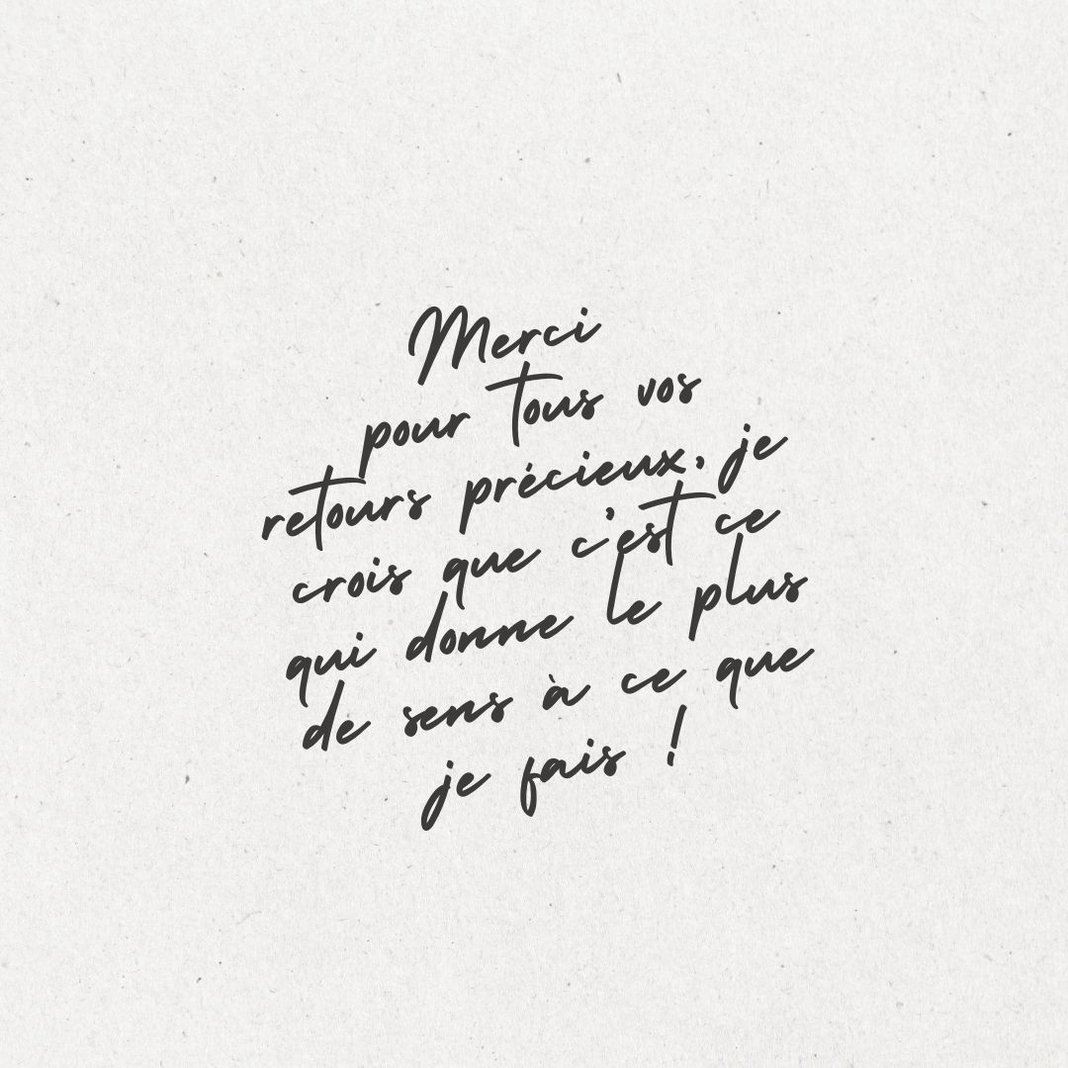 Merci
pour tous vos
retours précieux, je
crois que c'est ce
qui donne le plus
de sens à ce que
je fais !